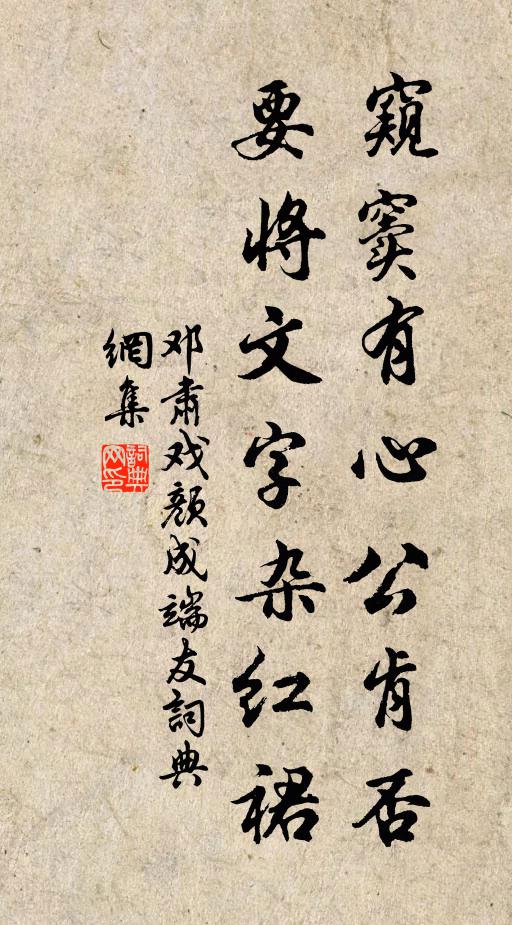 窺竇有心公肯否
要将文字杂红裙
邓肃戏颜成端友詞典
網集
詞典
网印